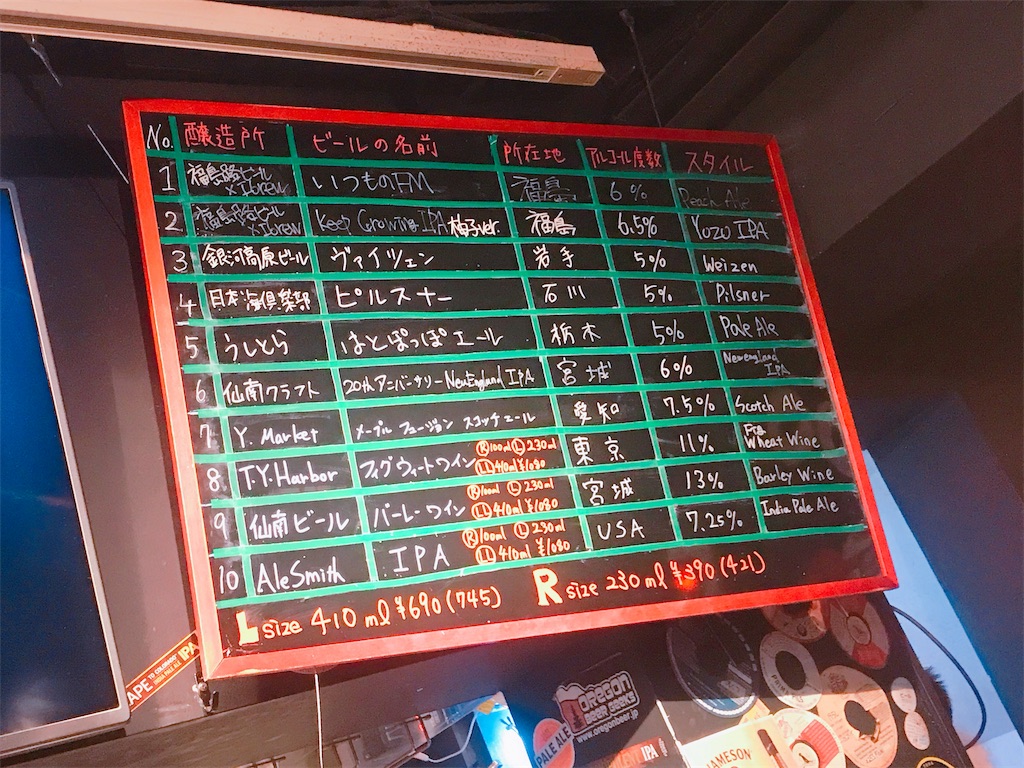 No. 醸造所 ビールの名前 所在地 アルコール度数 スタイル
1 福島路ビール × Ibrew いつものFM 福島 6% Peach Ale
2 福島路ビール × Ibrew Keep Growing IPA 柚子ver. 福島 6.5% Yuzu IPA
3 銀河高原ビール ヴァイツェン 岩手 5% Weizen
4 日本海倶楽部 ピルスナー 石川 5% Pilsner
5 うしとら はとぽっぽエール 栃木 5% Pale Ale
6 仙南クラフト 20th アニバーサリー NewEngland IPA 宮城 6% Newengland IPA
7 Y. Market メープル フュージョン スコッチエール 愛知 7.5% Scotch Ale
8 T.Y.Harbor フィグウィートワイン Ⓡ100ml Ⓛ230ml ⓁⓁ410ml ¥1080 東京 11% Fig Wheat Wine
9 仙南ビール バーレーワイン Ⓡ100ml Ⓛ230ml ⓁⓁ410ml ¥1080 宮城 13% Barley Wine
10 AleSmith IPA Ⓡ100ml Ⓛ230ml ⓁⓁ410ml ¥1080 USA 7.25% India Pale Ale
L size 410ml ¥690(745) R size 230ml ¥390(421)
APE TO COLORADO IPA
INDIA PALE ALE
OREGON
BEER GEEKS
www.oregonbeer.jp
PALE ALE
IPA
JAMESON